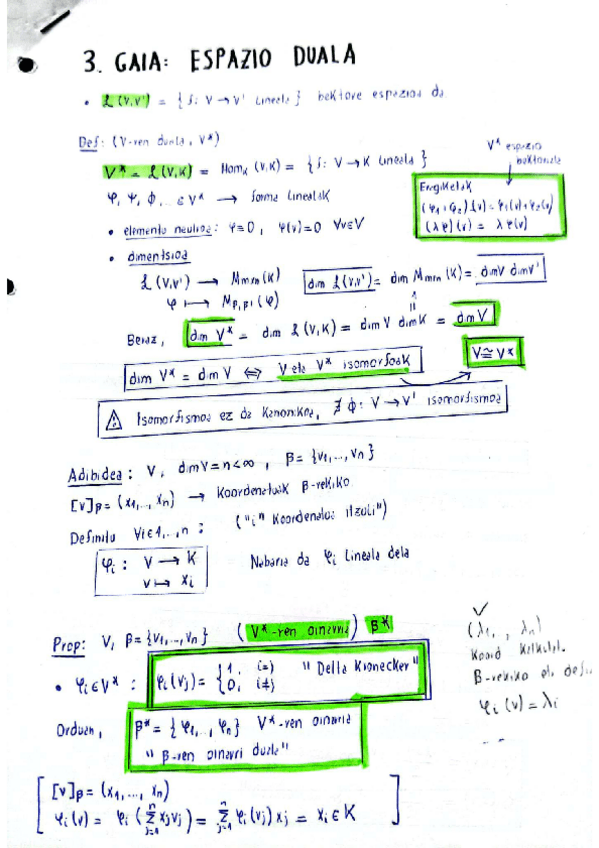 3. GAIA: ESPAZIO DUALA
• L(V,V') = { f: V → V' Lineala } bektore espazioa da
Def: (V-ren duala, V*)
V* = L(V,K) = Hom_K (V,K) = { f: V → K Lineala }
V* espazio bektoriala
φ, Ψ, ϕ, ... ∈ V* → forma linealak
Eragiketak
(φ1 + φ2)(v) = φ1(v) + φ2(v)
(λφ)(v) = λφ(v)
• elementu neutroa: φ=0, φ(v)=0 ∀v∈V
• dimentsioa
L(V,V') → Mmxn(K)
dim L(V,V') = dim Mmxn(K) = dimV dimV'
φ ↦ Mβ,β'(φ)
1
=
Beraz, dim V* = dim L(V,K) = dimV dimK = dimV
dim V* = dim V ⇔ V eta V* isomorfoak
V ≅ V*
⚠ Isomorfismoa ez da kanonikoa, ∄ ϕ: V → V' isomorfismoa
Adibidea: V, dimV=n<∞, β={v1,...,vn}
[v]β = (x1,...,xn) → Koordenatuak β-rekiko
Definitu ∀i∈1,...,n : ("i" koordenatua itzuli")
φi : V → K
v ↦ xi
Nabaria da φi lineala dela
Prop: V, β={v1,...,vn} (V*-ren oinarria) β*
• φi∈V* : φi(vj) = { 1, i=j
0, i≠j
"Delta Kronecker"
✓
(λ1, , λn)
Koord
β-rekiko
φi(v) = λi
Orduan, β* = {φ1,...,φn} V*-ren oinarria
"β-ren oinarri duala"
[v]β = (x1,...,xn)
φi(v) = φi(∑_{j=1}^n xjvj) = ∑_{j=1}^n φi(vj)xj = xi ∈ K